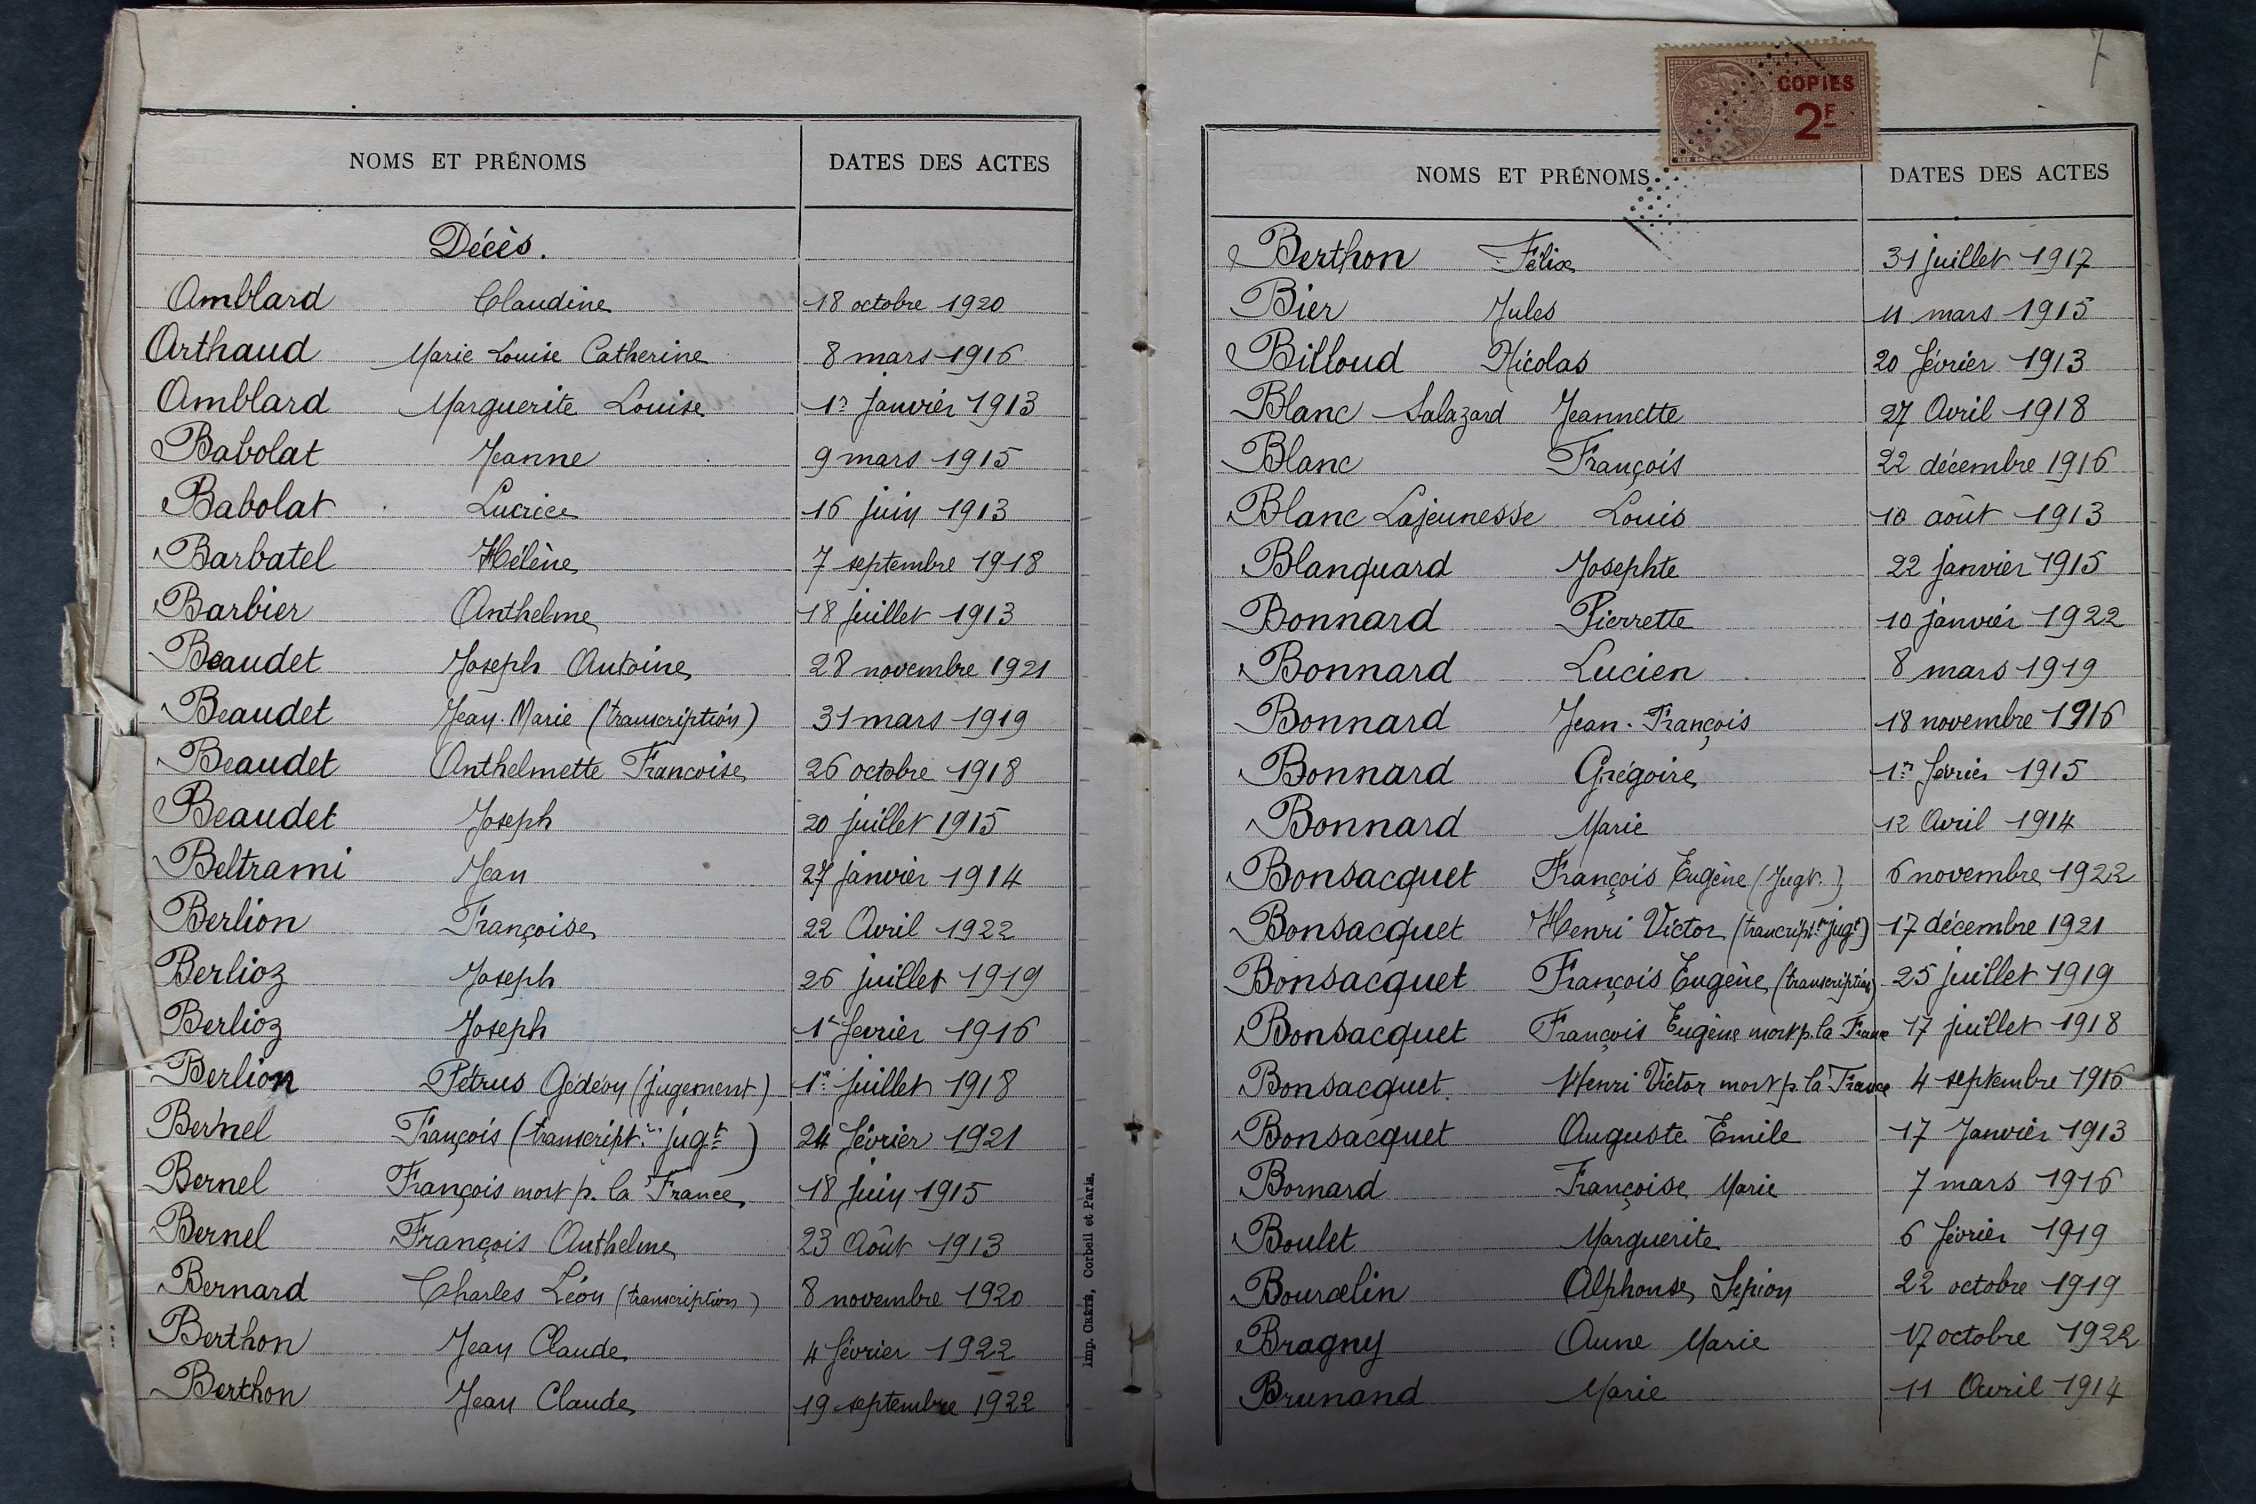 NOMS ET PRÉNOMS DATES DES ACTES
Décès.
Amblard Claudine 18 octobre 1920
Arthaud Marie Louise Catherine 8 mars 1916
Amblard Marguerite Louise 1er Janvier 1913
Babolat Jeanne 9 mars 1915
Babolat Lucrice 16 juin 1913
Barbatel Hélène 7 septembre 1918
Barbier Anthelme 18 juillet 1913
Beaudet Joseph Antoine 28 novembre 1921
Beaudet Jean-Marie (transcription) 31 mars 1919
Beaudet Anthelmette Francoise 26 octobre 1918
Beaudet Joseph 20 juillet 1915
Beltrami Jean 27 janvier 1914
Berlion Françoise 22 Avril 1922
Berlioz Joseph 26 juillet 1919
Berlioz Joseph 1er fevrier 1916
Berlion Pétrus Gédéon (jugement) 1er juillet 1918
Bernel François (transcript.on jugt) 24 février 1921
Bernel François mort p. la France 18 juin 1915
Bernel François Anthelme 23 Août 1913
Bernard Charles Léon (transcription) 8 novembre 1920
Berthon Jean Claude 4 février 1922
Berthon Jean Claude 19 septembre 1922
Imp. CRÉTÉ, Corbeil et Paris.
7
COPIES
2F
NOMS ET PRÉNOMS DATES DES ACTES
Berthon Félix 31 juillet 1917
Bier Jules 11 mars 1915
Billoud Nicolas 20 février 1913
Blanc Salazard Jeannette 27 Avril 1918
Blanc François 22 décembre 1916
Blanc Lajeunesse Louis 10 août 1913
Blanquard Josephte 22 janvier 1915
Bonnard Pierrette 10 janvier 1922
Bonnard Lucien 8 mars 1919
Bonnard Jean-François 18 novembre 1916
Bonnard Grégoire 1er février 1915
Bonnard Marie 12 Avril 1914
Bonsacquet François Eugène (Jugt.) 6 novembre 1922
Bonsacquet Henri Victor (trancript.on jugt) 17 décembre 1921
Bonsacquet François Eugène (transcription) 25 juillet 1919
Bonsacquet François Eugène mort p. la France 17 juillet 1918
Bonsacquet Henri Victor mort p. la France 4 septembre 1916
Bonsacquet Auguste Emile 17 Janvier 1913
Bornard Françoise Marie 7 mars 1916
Boulet Marguerite 6 février 1919
Bourcelin Alphonse 22 octobre 1919
Bragny Anne Marie 17 octobre 1922
Brunand Marie 11 Avril 1914